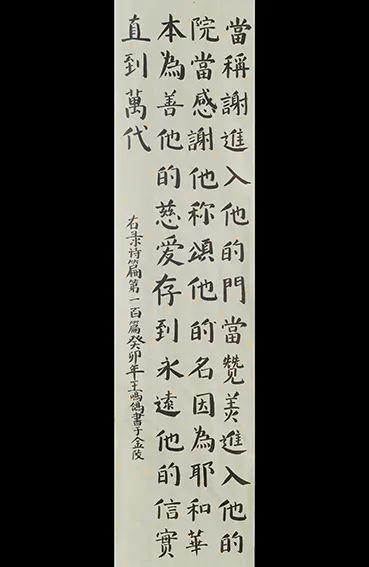 當稱謝進入他的門當贊美進入他的
院當感謝他称頌他的名因為耶和華
本為善他的慈爱存到永遠他的信實
直到萬代
右录诗篇第一百篇癸卯年王鸣鸽書于金陵